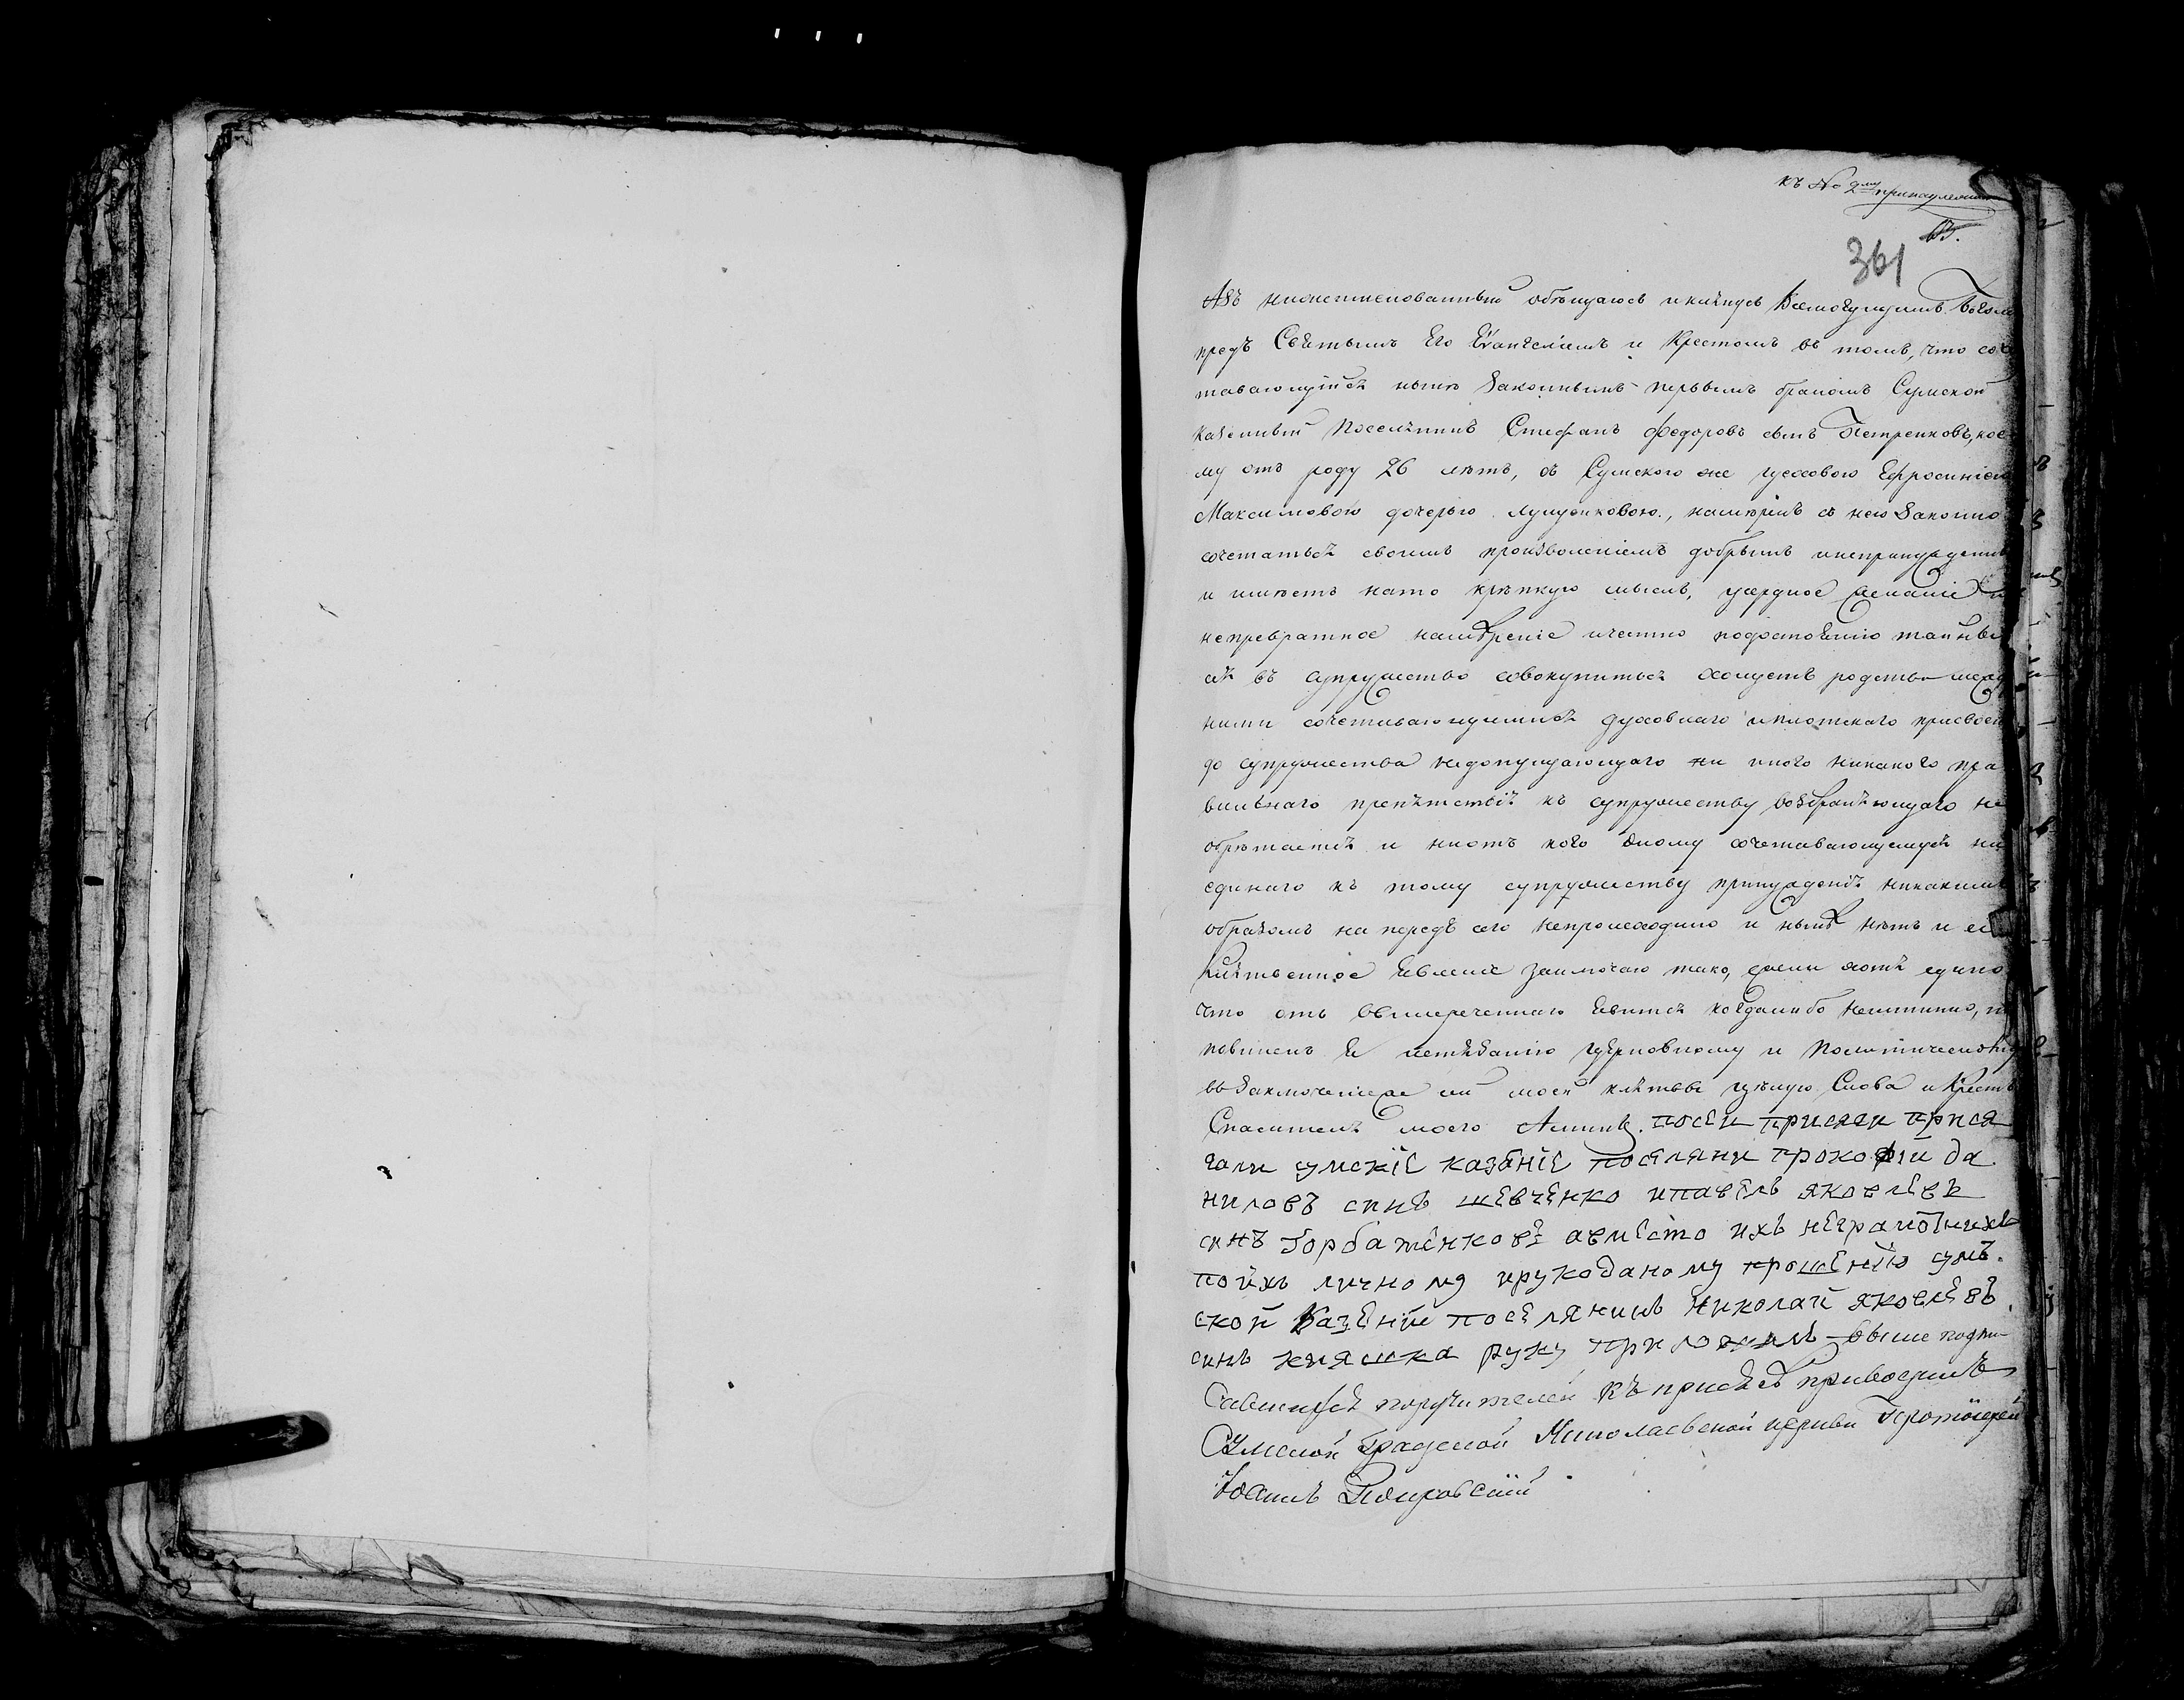 къ № 2му
63.
361
Азъ нижеименованный обѣщаюсь и клянусь Всемогущимъ Богомъ
предъ Святымъ Его Евангелiемъ и Крестомъ въ томъ, что соче
тавающiйся нынѣ законнымъ первымъ бракомъ Сумской
казенный поселянинъ Стефанъ Федоровъ сынъ Петренковъ, кое
му отъ роду 26 лѣтъ, съ Сумскою же цеховою Ефросинiею
Максимовою дочерью Луценковою, намѣренъ съ нею законно
сочетаться своимъ произволенiемъ добрымъ и непринужденнымъ
и имѣетъ на то крѣпкую мысль, усердное желанiе и
непревратное намѣренiе и честно по достоянiю тайны
ся въ супружество совокупиться хощетъ родства между
ними сочетавающимися духовнаго и плотскаго присвоенiя
до супружества недопущающаго ни иного никакого пра
вильнаго препятствiя къ супружеству возбраняющаго не
обрѣтается и ни отъ кого оному сочетавающемуся ни
единаго къ тому супружеству принужденiя никакимъ
образомъ на передъ сего непроисходило и нынѣ нѣтъ и сiе
клятвенное явленiе заключаю тако, ежели хотя едино
что отъ вышереченнаго явится когдалибо неистинно, то
повиненъ я истязанiю церковному и политическому
въ заключенiе же сей моей клятвы цѣлую Слова и Крестъ
Спасителя моего Аминь. посей присяги прися
гали сумскiе казѣнiе посѣляни прокофiи да
ниловъ синъ шевчѣнко ипавелъ яковлѣвъ
синъ Горбатѣнковъ авмѣсто ихъ неграмотнихъ
поихъ личному ирукоданому прошѣнiю сум.
ской казѣнiй посѣлянинъ Николай яковлѣвъ
синъ княшка руку приложилъ выше подпи
савшихся поручителей къ присягѣ приводилъ
Сумской градской Николаевской церкви Протоiерей
Iоаннъ Покровскiй